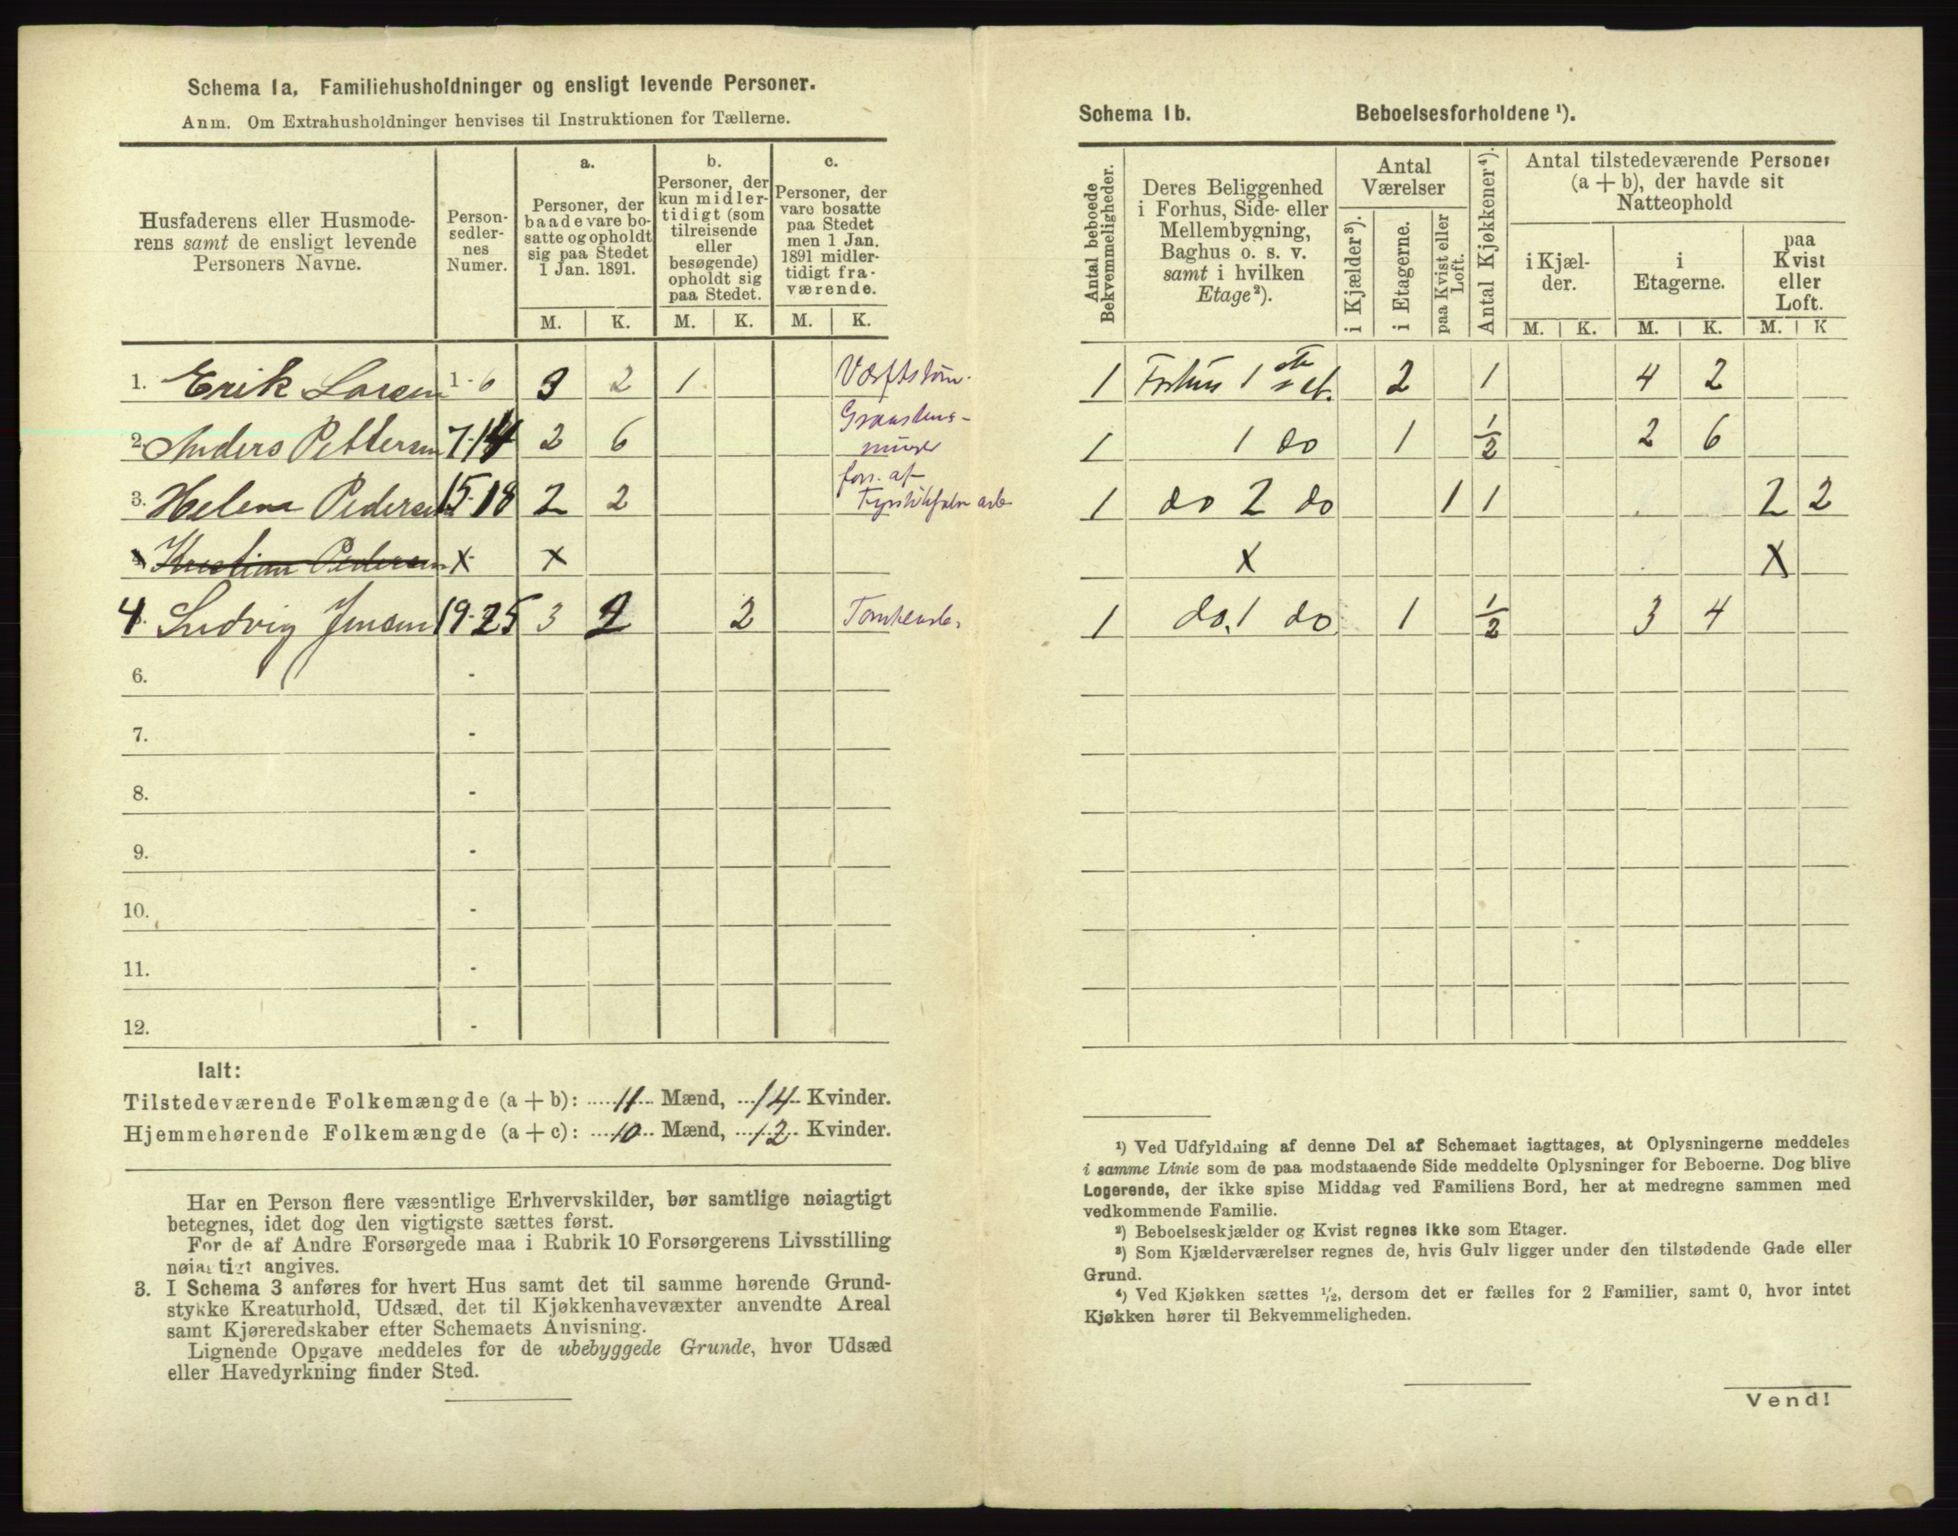 Schema 1a. Familiehusholdninger og ensligt levende Personer.
Anm. Om Extrahusholdninger henvises til Instruktionen for Tællerne.
Husfaderens eller Husmode-
rens samt de ensligt levende
Personers Navne.
Person-
sedler-
nes
Numer.
a.
Personer, der
baade vare bo-
satte og opholdt
sig paa Stedet
1 Jan. 1891.
b.
Personer, der
kun midler-
tidigt (som
tilreisende
eller
besøgende)
opholdt sig
paa Stedet.
c.
Personer, der
vare bosatte
paa Stedet
men 1 Jan.
1891 midler-
tidigt fra-
værende.
M. K. M. K. M. K.
1. Erik Larsen 1-6 3 2 1 Værftstøm.
2. Anders Pettersen 7-14 2 6 Graastens-
minør
3. Helena Pedersen 15-18 2 2 fors. af
Fyrstikfabr arb
Kristian Pedersen x x
4. Ludvig Jensen 19-25 3 2 2 Tomtearb.
6. -
7. -
8. -
9. -
10. -
11. -
12. -
Ialt:
Tilstedeværende Folkemængde (a + b): 11 Mænd, 14 Kvinder.
Hjemmehørende Folkemængde (a + c): 10 Mænd, 12 Kvinder.
Har en Person flere væsentlige Erhvervskilder, bør samtlige nøiagtigt
betegnes, idet dog den vigtigste sættes først.
For de af Andre Forsørgede maa i Rubrik 10 Forsørgerens Livsstilling
nøiagtigt angives.
3. I Schema 3 anføres for hvert Hus samt det til samme hørende Grund-
stykke Kreaturhold, Udsæd, det til Kjøkkenhavevæxter anvendte Areal
samt Kjøreredskaber efter Schemaets Anvisning.
Lignende Opgave meddeles for de ubebyggede Grunde, hvor Udsæd
eller Havedyrkning finder Sted.
Schema 1b. Beboelsesforholdene ¹).
Antal beboede
Bekvemmeligheder.
Deres Beliggenhed
i Forhus, Side- eller
Mellembygning,
Baghus o. s. v.
samt i hvilken
Etage²).
Antal
Værelser
i Kjælder³).
i Etagerne.
paa Kvist eller
Loft.
Antal Kjøkkener⁴).
Antal tilstedeværende Personer
(a + b), der havde sit
Natteophold
i Kjæl-
der.
i
Etagerne.
paa
Kvist
eller
Loft.
M. K. M. K. M. K
1 Forhus 1ste et. 2 1 4 2
1 1 do 1 ½ 2 6
1 do 2 do 1 1 2 2
x x
1 do. 1 do 1 ½ 3 4
¹) Ved Udfyldning af denne Del af Schemaet iagttages, at Oplysningerne meddeles
i samme Linie som de paa modstaaende Side meddelte Oplysninger for Beboerne. Dog blive
Logerende, der ikke spise Middag ved Familiens Bord, her at medregne sammen med
vedkommende Familie.
²) Beboelseskjælder og Kvist regnes ikke som Etager.
³) Som Kjælderværelser regnes de, hvis Gulv ligger under den tilstødende Gade eller
Grund.
⁴) Ved Kjøkken sættes ½, dersom det er fælles for 2 Familier, samt 0, hvor intet
Kjøkken hører til Bekvemmeligheden.
Vend!